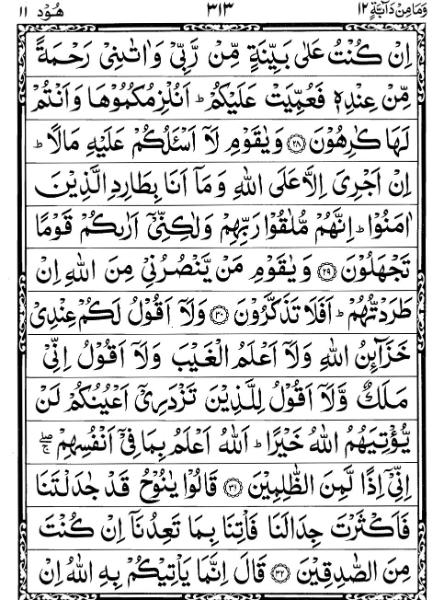 وَمَا مِنْ دَآبَّةٍ ١٢ ٣١٣ هُوْد ١١
اِنْ كُنْتُ عَلٰى بَيِّنَةٍ مِّنْ رَّبِّىْ وَاٰتٰىنِىْ رَحْمَةً
مِّنْ عِنْدِهٖ فَعُمِّيَتْ عَلَيْكُمْ ؕ اَنُلْزِمُكُمُوْهَا وَاَنْتُمْ
لَهَا كٰرِهُوْنَ ﴿۲۸﴾ وَيٰقَوْمِ لَاۤ اَسْـَٔلُكُمْ عَلَيْهِ مَالًا ؕ
اِنْ اَجْرِىَ اِلَّا عَلَى اللّٰهِ وَمَاۤ اَنَا بِطَارِدِ الَّذِيْنَ
اٰمَنُوْا ؕ اِنَّهُمْ مُّلٰقُوْا رَبِّهِمْ وَلٰكِنِّىْۤ اَرٰىكُمْ قَوْمًا
تَجْهَلُوْنَ ﴿۲۹﴾ وَيٰقَوْمِ مَنْ يَّنْصُرُنِىْ مِنَ اللّٰهِ اِنْ
طَرَدْتُّهُمْ ؕ اَفَلَا تَذَكَّرُوْنَ ﴿۳۰﴾ وَلَاۤ اَقُوْلُ لَكُمْ عِنْدِىْ
خَزَآئِنُ اللّٰهِ وَلَاۤ اَعْلَمُ الْغَيْبَ وَلَاۤ اَقُوْلُ اِنِّىْ
مَلَكٌ وَّلَاۤ اَقُوْلُ لِلَّذِيْنَ تَزْدَرِىْۤ اَعْيُنُكُمْ لَنْ
يُّؤْتِيَهُمُ اللّٰهُ خَيْرًا ؕ اَللّٰهُ اَعْلَمُ بِمَا فِىْۤ اَنْفُسِهِمْ ۖۚ
اِنِّىْۤ اِذًا لَّمِنَ الظّٰلِمِيْنَ ﴿۳۱﴾ قَالُوْا يٰنُوْحُ قَدْ جٰدَلْتَنَا
فَاَكْثَرْتَ جِدَالَنَا فَاْتِنَا بِمَا تَعِدُنَاۤ اِنْ كُنْتَ
مِنَ الصّٰدِقِيْنَ ﴿۳۲﴾ قَالَ اِنَّمَا يَاْتِيْكُمْ بِهِ اللّٰهُ اِنْ